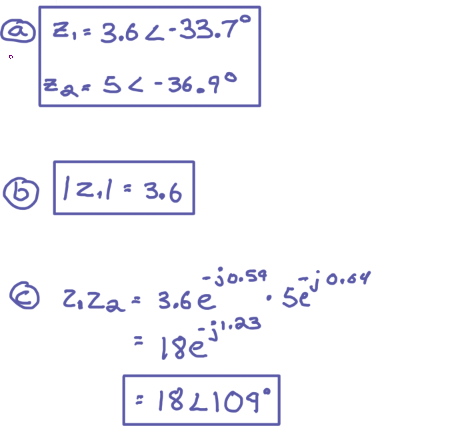 a z₁ = 3.6∠-33.7°
z₂ = 5∠-36.9°
b |z₁| = 3.6
c z₁z₂ = 3.6e^(-j0.59) · 5e^(-j0.64)
= 18e^(-j1.23)
= 18∠109°